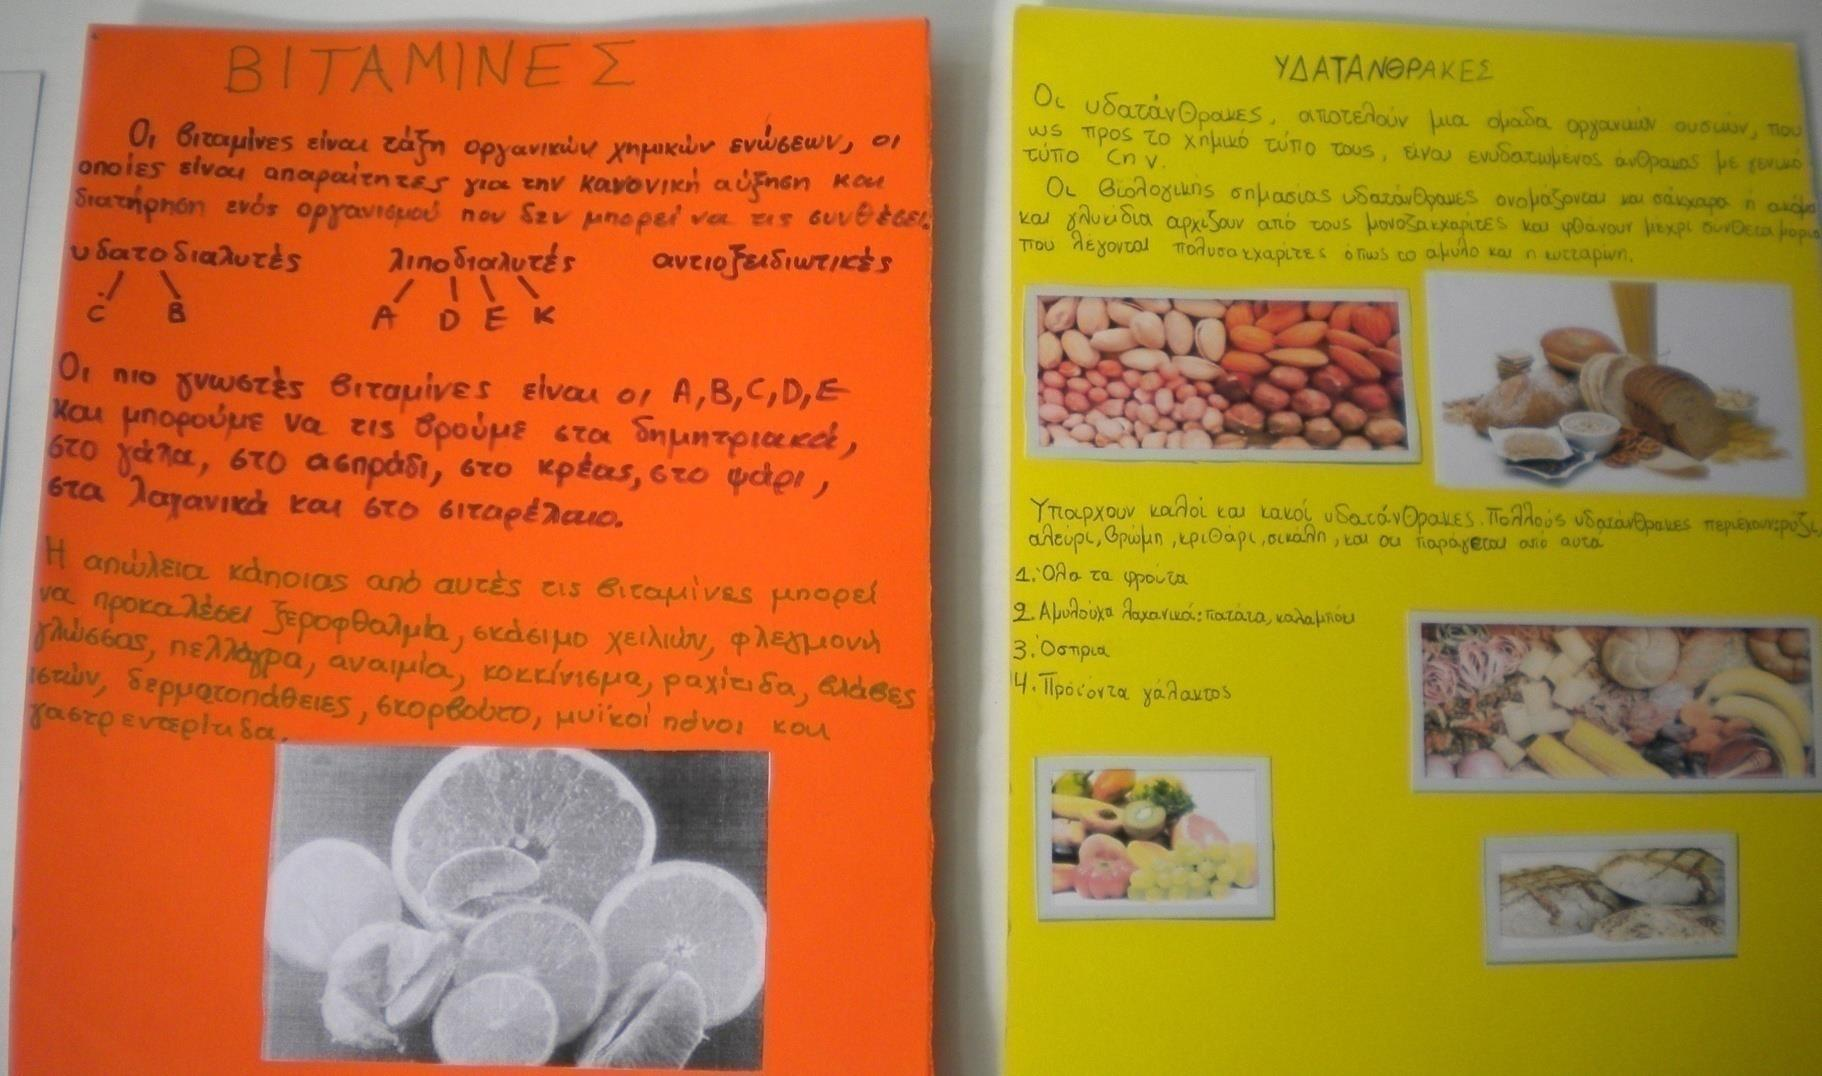 ΒΙΤΑΜΙΝΕΣ
Οι βιταμίνες είναι τάξη οργανικών χημικών ενώσεων, οι
οποίες είναι απαραίτητες για την κανονική αύξηση και
διατήρηση ενός οργανισμού που δεν μπορεί να τις συνθέσει.
υδατοδιαλυτές λιποδιαλυτές αντιοξειδωτικές
C B A D E K
Οι πιο γνωστές βιταμίνες είναι οι A, B, C, D, E
και μπορούμε να τις βρούμε στα δημητριακά,
στο γάλα, στο ασπράδι, στο κρέας, στο ψάρι,
στα λαχανικά και στο σιταρέλαιο.
Η απώλεια κάποιας από αυτές τις βιταμίνες μπορεί
να προκαλέσει ξεροφθαλμία, σκάσιμο χειλιών, φλεγμονή
γλώσσας, πελλάγρα, αναιμία, κοκκίνισμα, ραχίτιδα, βλάβες
ιστών, δερματοπάθειες, σκορβούτο, μυϊκοί πόνοι και
γαστρεντερίτιδα.
ΥΔΑΤΑΝΘΡΑΚΕΣ
Οι υδατάνθρακες, αποτελούν μια ομάδα οργανικών ουσιών, που
ως προς το χημικό τύπο τους, είναι ενυδατωμένος άνθρακας με γενικό
τύπο
Οι βιολογικής σημασίας υδατάνθρακες ονομάζονται και σάκχαρα ή ακόμα
και γλυκίδια αρχίζουν από τους μονοζακχαρίτες και φθάνουν μεχρι συνθετα μορια
που λέγονται πολυσακχαρίτες όπως το αμυλο και η κυτταρίνη.
Υπαρχουν καλοί και κακοί υδατάνθρακες. Πολλούς υδατάνθρακες περιέχουν ρύζι,
αλεύρι, βρώμη, κριθάρι, σικάλη, και οτι παράγεται από αυτα
1. Όλα τα φρούτα
2. Αμυλούχα λαχανικά: πατάτα, καλαμπόκι
3. Όσπρια
4. Προϊόντα γάλακτος